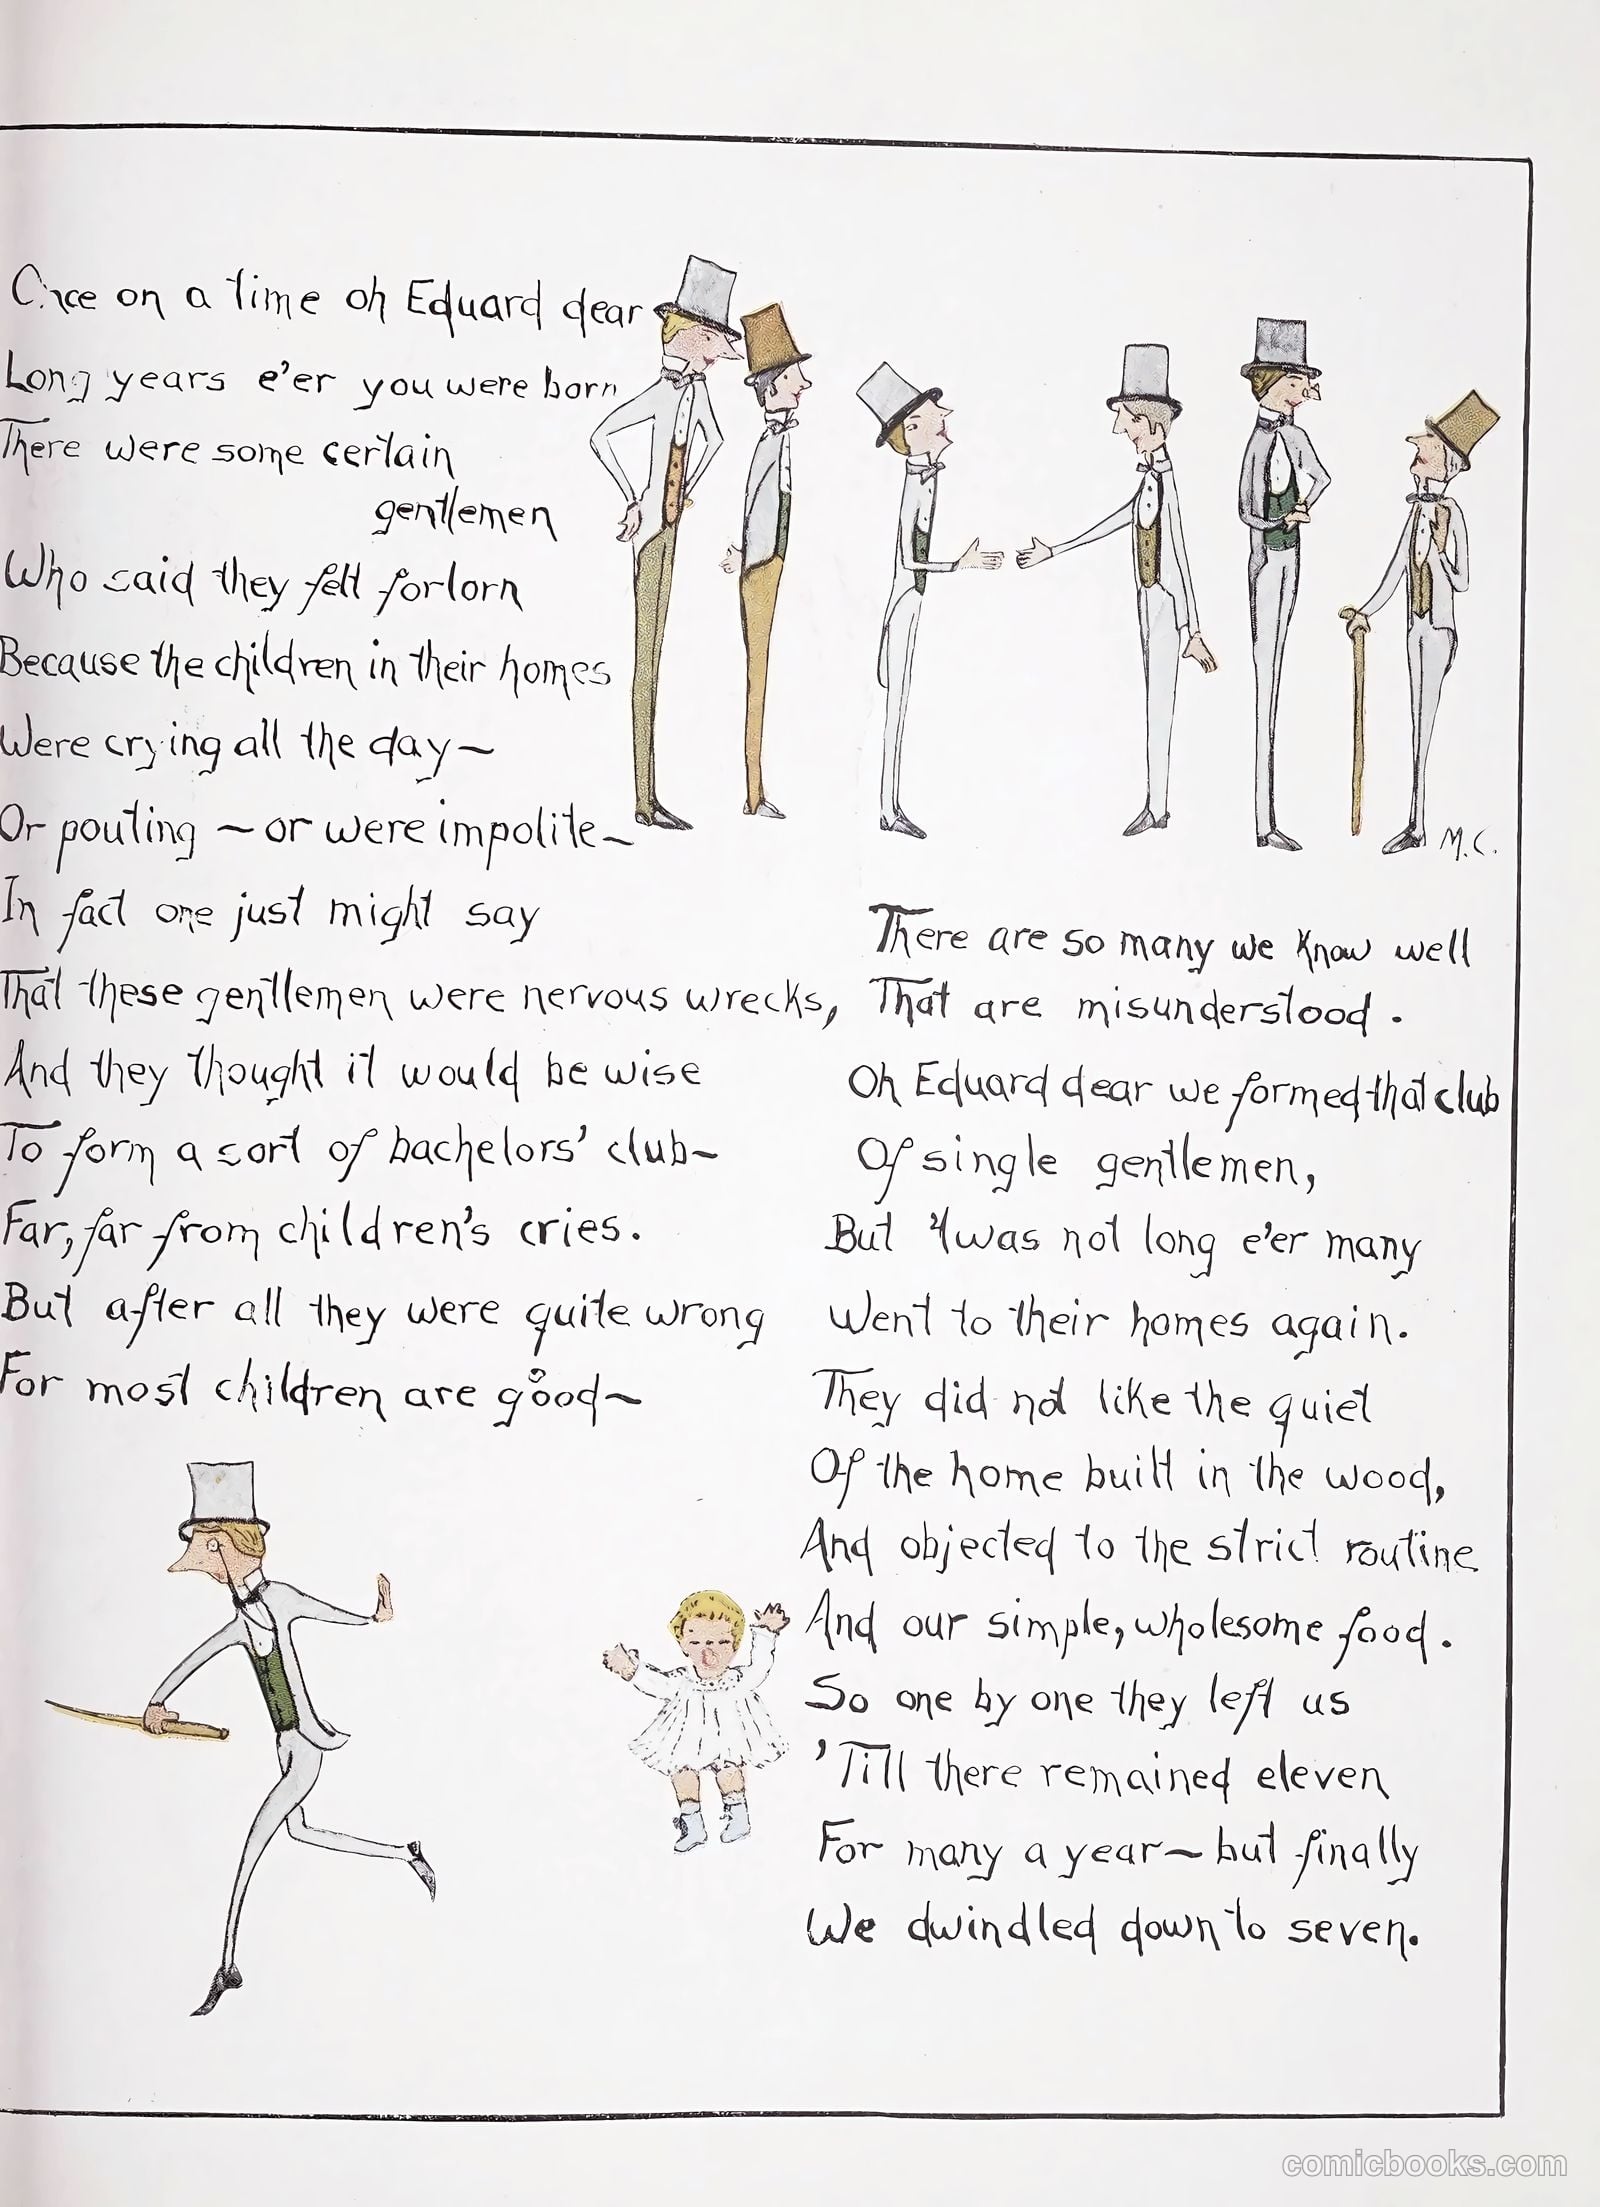 Once on a time oh Eduard dear
Long years e'er you were born
There were some certain
gentlemen
Who said they felt forlorn
Because the children in their homes
Were crying all the day~
Or pouting ~ or were impolite~
In fact one just might say
That these gentlemen were nervous wrecks,
And they thought it would be wise
To form a sort of bachelors' club~
Far, far from children's cries.
But after all they were quite wrong
For most children are good~
M.C.
There are so many we know well
That are misunderstood.
Oh Eduard dear we formed that club
Of single gentlemen,
But 'twas not long e'er many
Went to their homes again.
They did not like the quiet
Of the home built in the wood,
And objected to the strict routine
And our simple, wholesome food.
So one by one they left us
'Till there remained eleven
For many a year~ but finally
We dwindled down to seven.
comicbooks.com